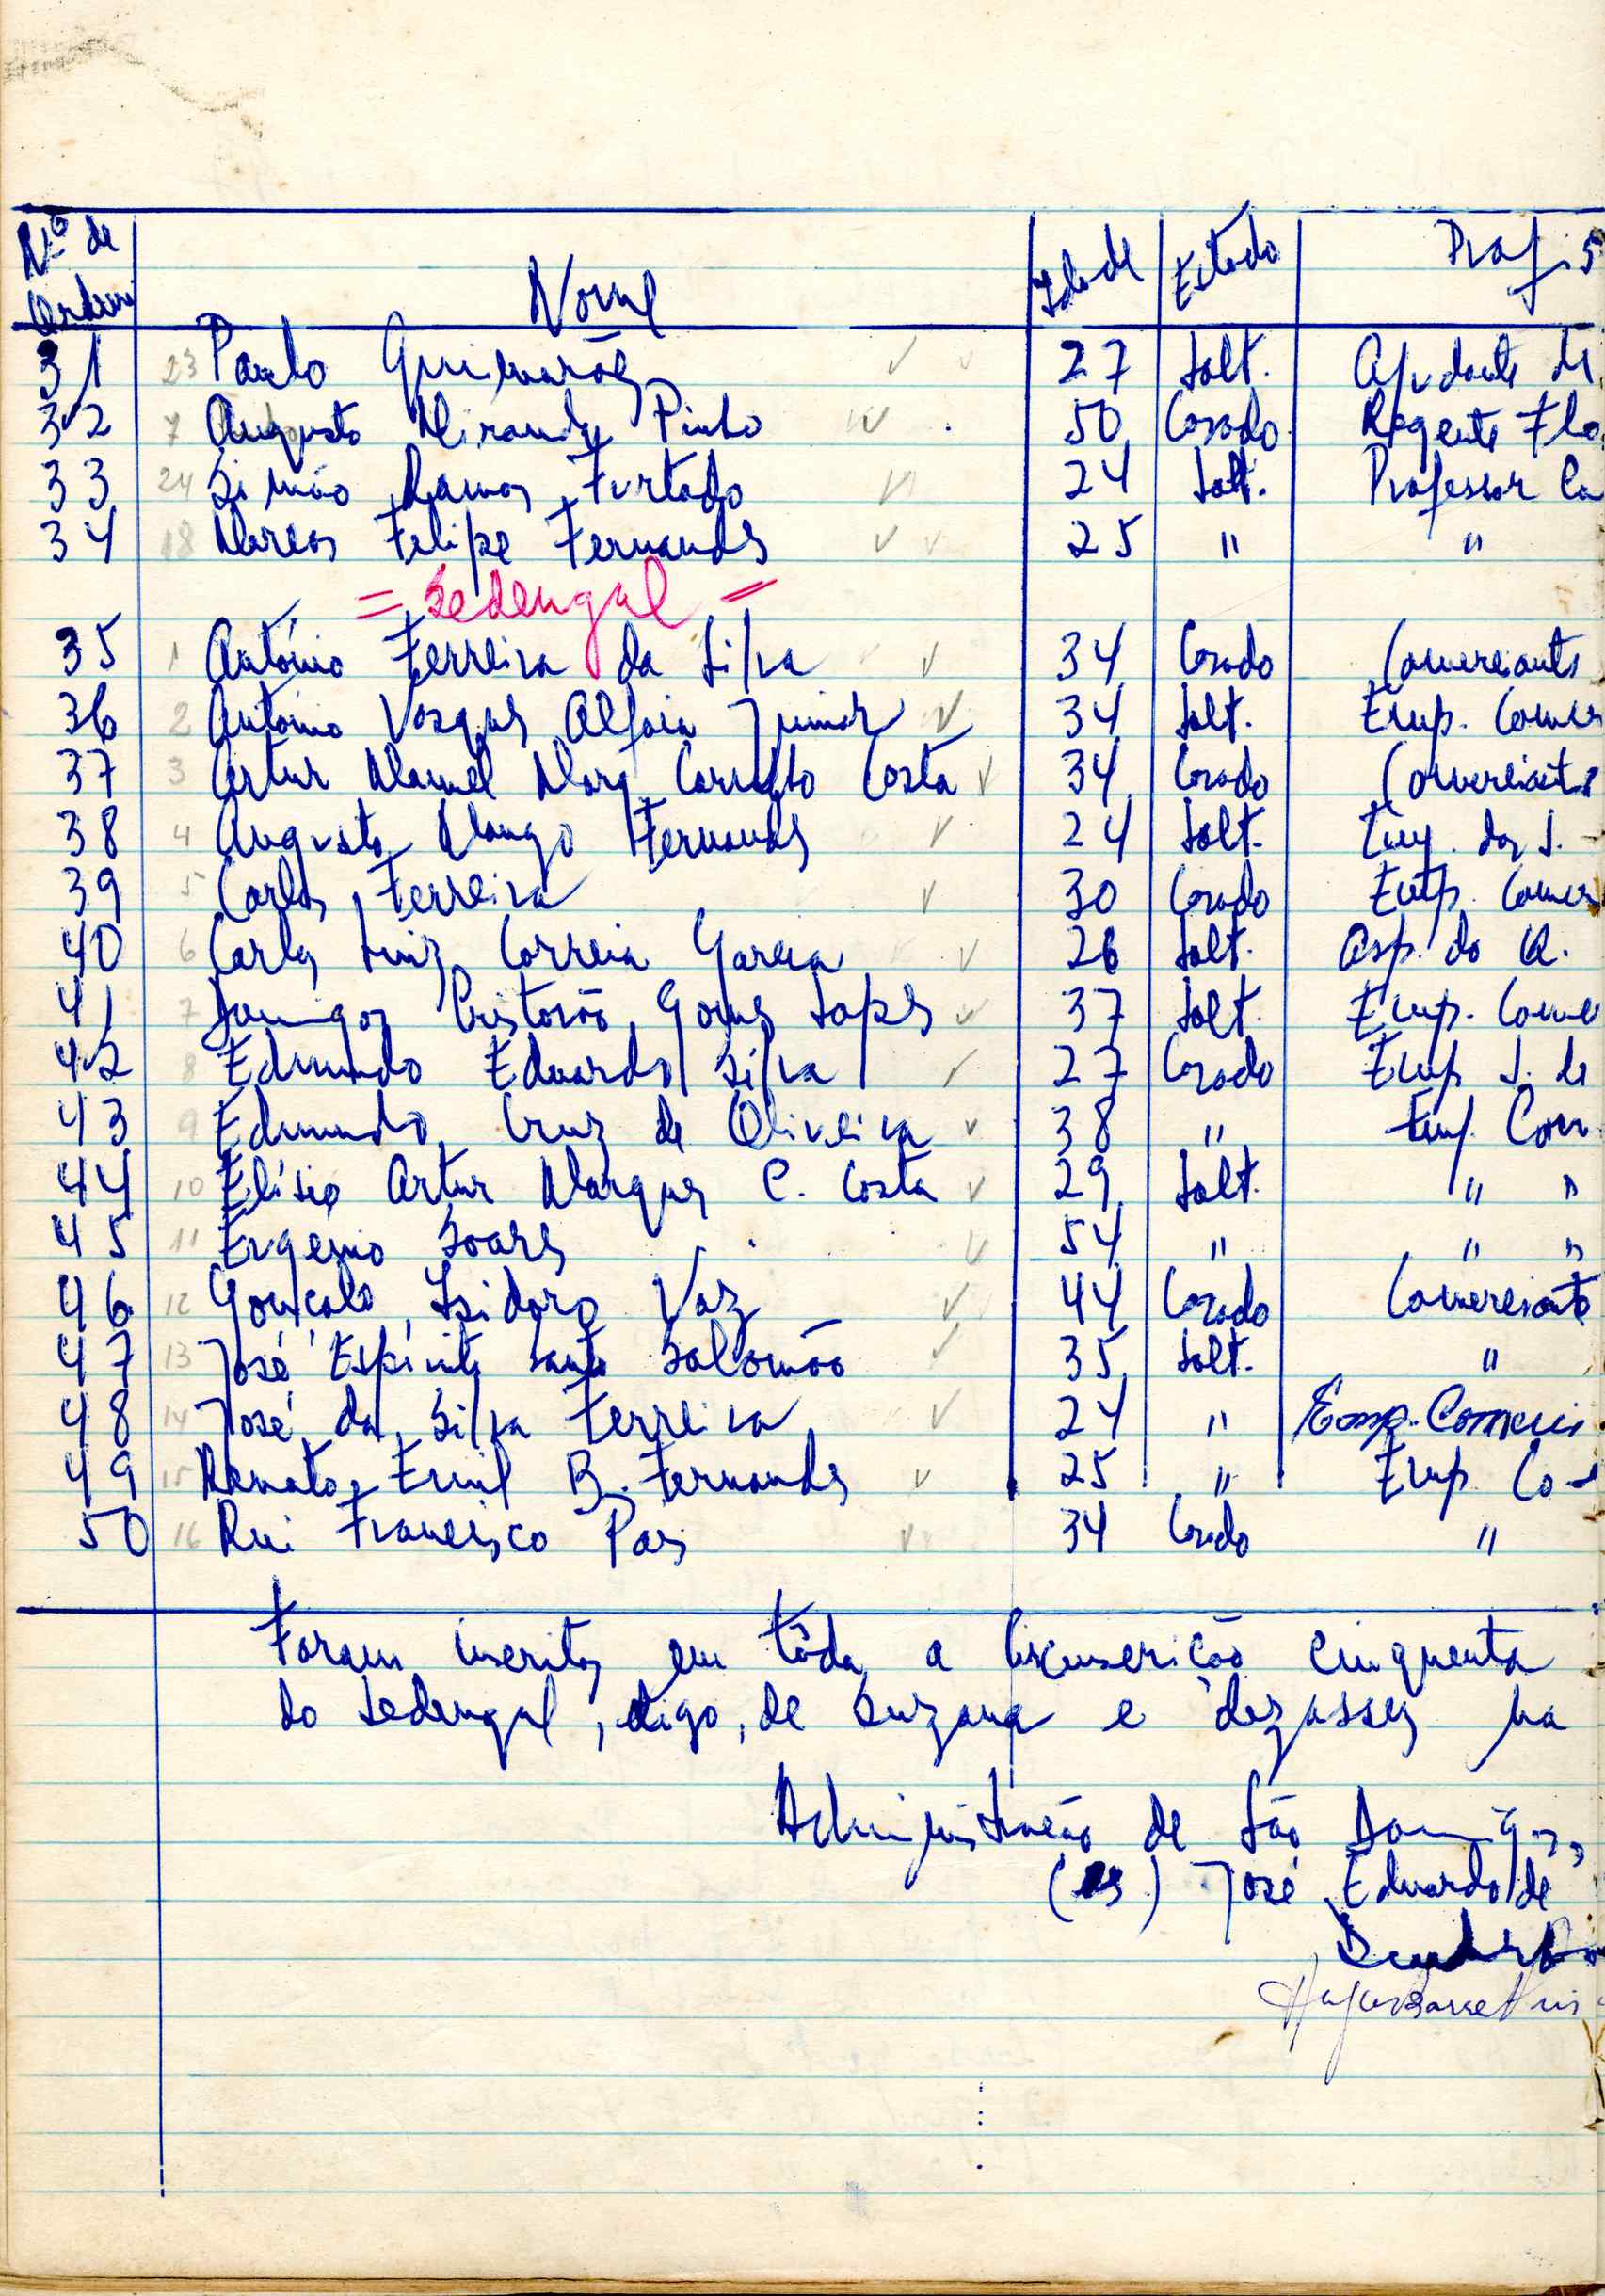 Nº de Ordem Nome Idade Estado Profis
31 23 Paulo Guimarães 27 Solt. Ajudante de
32 7 Augusto Miranda Pinho 50 Casado Regente Flo
33 24 Simão Ramos Furtado 24 Solt. Professor Ca
34 18 Marcos Felipe Fernandes 25 " "
= Sedengal =
35 1 António Ferreira da Silva 34 Casado Comerciante
36 2 António Vasques Alfaia Junior 34 Solt. Emp. Comer
37 3 Artur Manuel Marq. Carvalho Costa 34 Casado Comerciante
38 4 Augusto Mango Fernandes 24 Solt. Emp. dos S.
39 5 Carlos Ferreira 30 Casado Emp. Comer
40 6 Carlos Luiz Correia Garcia 26 Solt. Asp. do Q.
41 7 Domingos Cristovão Gomes Lopes 37 Solt. Emp. Comer
42 8 Edmundo Eduardo Silva 27 Casado Emp S. de
43 9 Edmundo Cruz de Oliveira 38 " Emp. Com
44 10 Elísio Artur Marques C. Costa 29 Solt. " "
45 11 Eugénio Soares 54 " " "
46 12 Gonçalo Isidoro Vaz 44 Casado Comerciante
47 13 José Espírito Santo Salomão 35 Solt. "
48 14 José da Silva Ferreira 24 " Emp. Comerci
49 15 Renato Emil B. Fernandes 25 " Emp. Co
50 16 Rui Francisco Pas 34 Casado "
Foram inscritos em tôda a Circunscrição cinquenta
do Sedengal, digo, de Suzana e dezasseis na
Administração de São Domingos,
(as) José Eduardo de